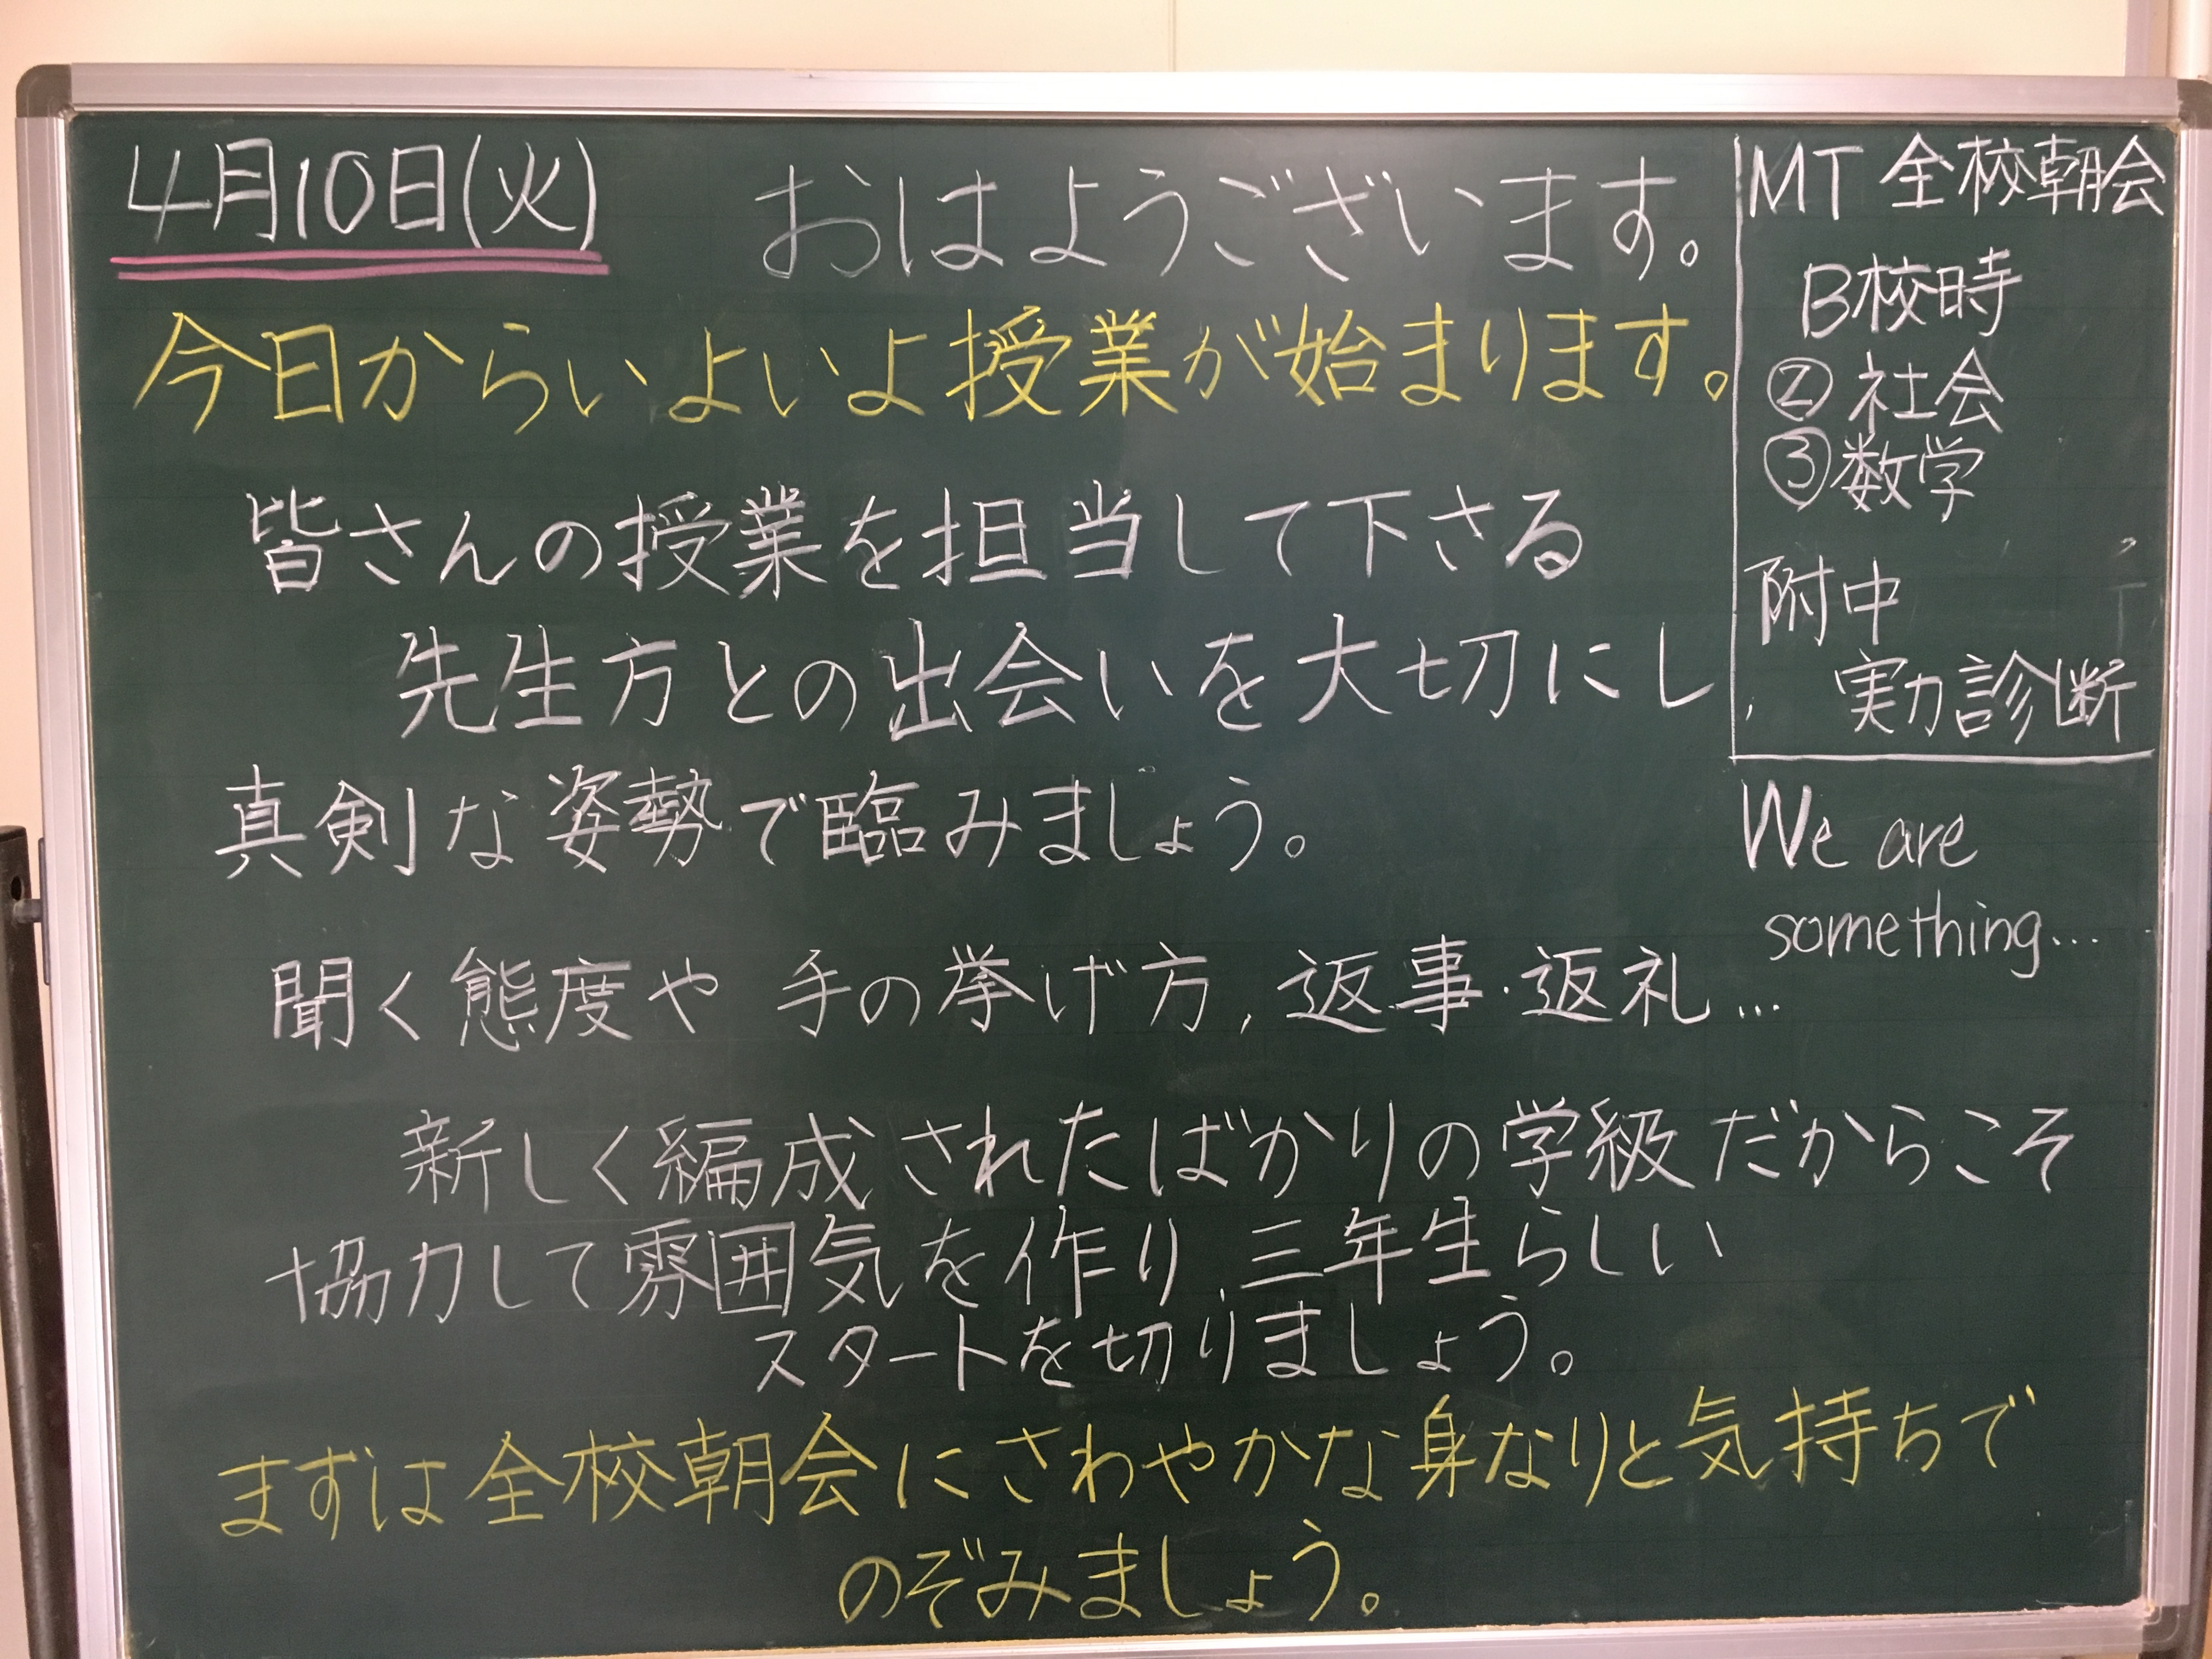 4月10日(火)
おはようございます。
今日からいよいよ授業が始まります。
皆さんの授業を担当して下さる
先生方との出会いを大切にし,
真剣な姿勢で臨みましょう。
聞く態度や 手の挙げ方, 返事・返礼…
新しく編成されたばかりの学級だからこそ
協力して雰囲気を作り, 三年生らしい
スタートを切りましょう。
まずは全校朝会にさわやかな身なりと気持ちで
のぞみましょう。
MT 全校朝会
B校時
② 社会
③ 数学
附中
実力診断
We are
something...